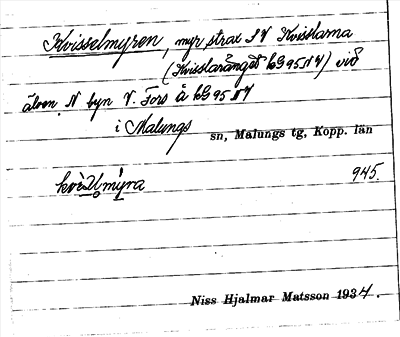 Kvisselmyren, myr strax SV Kvisslarna
(Kvisslarånget bG95NV) vid
älven, N byn V. Fors å bG95NV
i Malungs sn, Malungs tg, Kopp. län
myra 945.
Niss Hjalmar Matsson 1934.